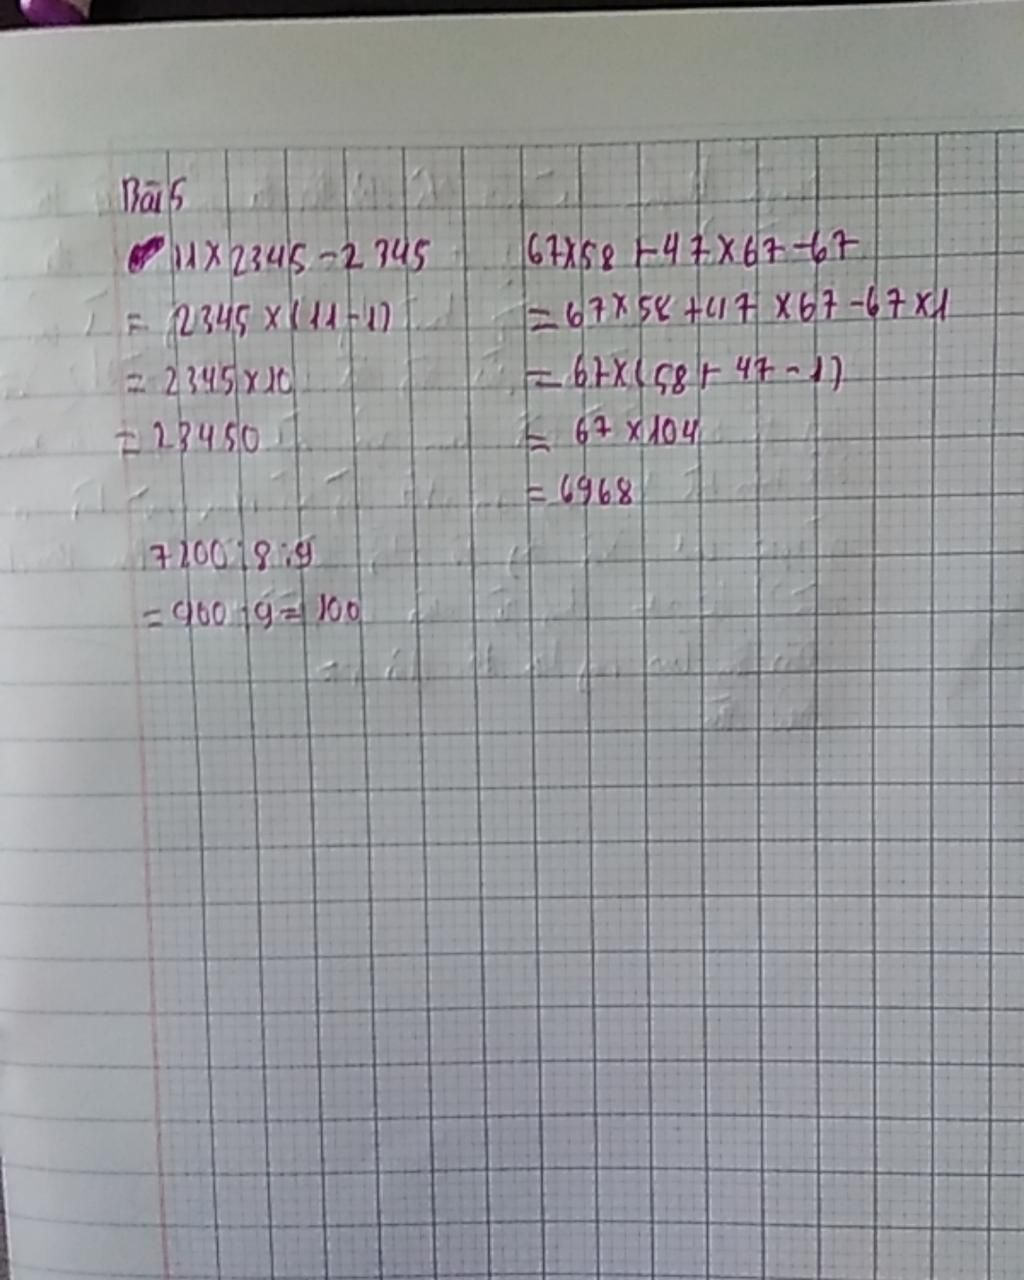 Bài 5
11 × 2345 - 2345
= 2345 × (11 - 1)
= 2345 × 10
= 23450
67 × 58 + 47 × 67 - 67
= 67 × 58 + 47 × 67 - 67 × 1
= 67 × (58 + 47 - 1)
= 67 × 104
= 6968
7200 : 8 : 9
= 900 : 9 = 100